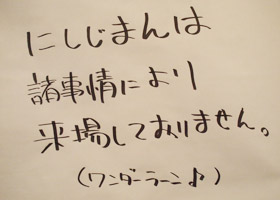 にしじまんは
諸事情により
来場しておりません。
(ワンダーラーン♪)